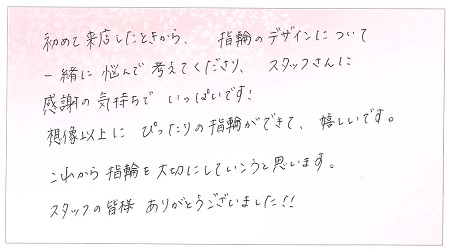 初めて来店したときから、 指輪のデザインについて
一緒に悩んで考えてくださり、 スタッフさんに
感謝の気持ちで いっぱいです!
想像以上に ぴったりの指輪ができて、嬉しいです。
これから指輪を大切にしていこうと思います。
スタッフの皆様 ありがとうございました!!